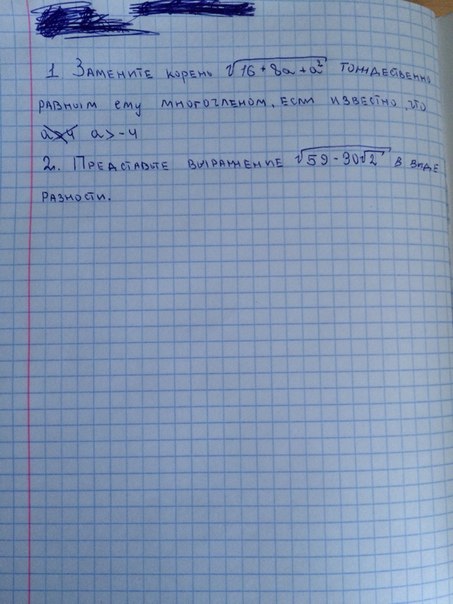 1 Замените корень √16 + 8a + a² тождественно
равным ему многочленом, если известно, что
a > -4
2. Представьте выражение √59 - 30√2 в виде
разности.